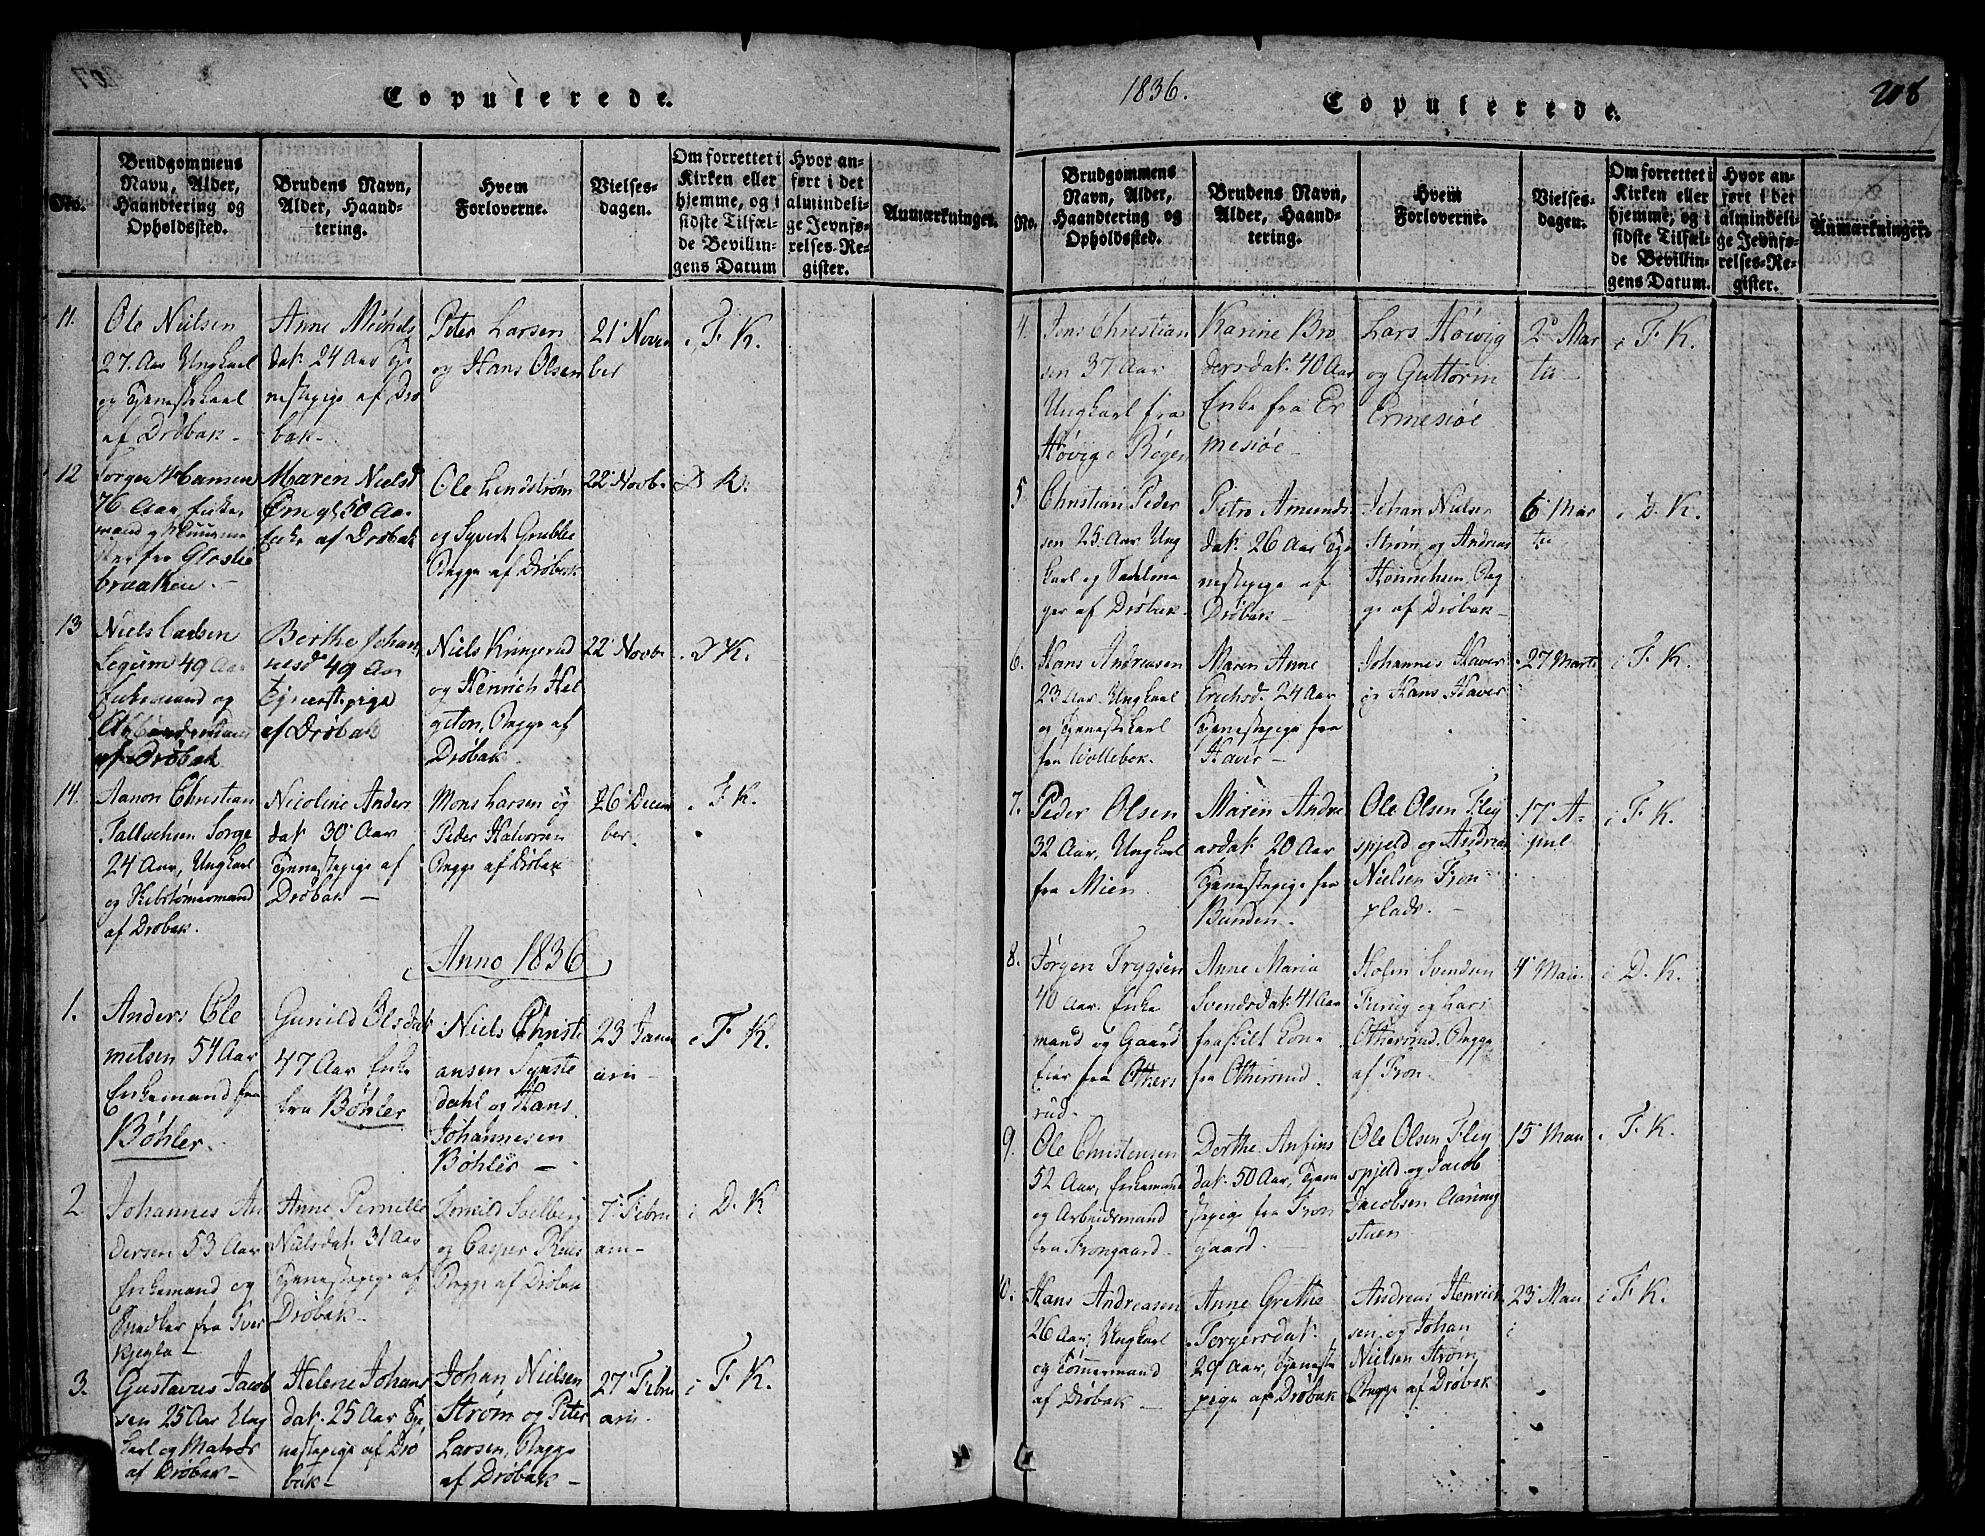 Copulerede.
No.
Brudgommens
Navn, Alder,
Haandtering og
Opholdssted.
Brudens Navn,
Alder, Haand-
tering.
Hvem
Forloverne.
Vielses-
dagen.
Om forrettet i
Kirken eller
hjemme, og i
sidste Tilfæl-
de Bevillin-
gens Datum
Hvor an-
ført i det
almindeli-
ge Jevnfø-
relses-Re-
gister.
Anmærkninger.
11.
Ole Nielsen
27. Aar Ungkarl
og Tjenestekarl
af Drøbak -
Anne Michels
dat. 24 Aar Tje
nestepige af Drø
bak -
Peter Larsen
og Hans Olsen
21' Novem
ber
i F. K.
12
Jørgen Hansen
76 Aar, Enke
mand og
fra
braaten. -
Maren Nielsd
50 Aar
Enke af Drøbak
Ole Lindstrøm
og Syvert Grubbe
Begge af Drøbak
22' Novb.
D. K.
13
Niels Carlsen
49 Aar
Enkemand og
Arbeidsmand
af Drøbak
Berthe Johan
nesd. 49 Aar
Tjenestepige
af Drøbak
Niels Kringerud
og Henrich Hel
geton, Begge af
Drøbak.
22' Novb.
D. K.
14.
Aanon Christian
24 Aar, Ungkarl
og
af Drøbak.
Nicoline Anders
dat. 30 Aar
Tjenestepige af
Drøbak -
Mons Larsen og
Peder Halvorsen
Begge af Drøbak
26' Decem
ber.
i F. K.
Anno 1836
1.
Anders Cle
metsen 54 Aar
Enkemand fra
Bøhler.
Gunild Olsdat.
47 Aar Enke
fra Bøhler
Niels Christi
ansen Synste
dahl og Hans
Johannesen
Bøhler -
23 Janu
arii -
i F. K.
2.
Johannes An
dersen 53 Aar
Enkemand og
fra
Anne Pernille
Nielsdat. 31 Aar
Tjenestepige af
Drøbak -
og Casper
Begge af Drøbak
7' Febru
arii -
i D. K.
3.
Gustavus Jacob
sen 25 Aar Ung
karl og Matros
af Drøbak -
Helene Johans
dat. 25 Aar Tje
nestepige af Drø
bak -
Johan Nielsen
Strøm og Peter
Larsen, Begge
af Drøbak -
27' Febru
arii -
i F. K.
1836.
Copulerede.
208
No.
Brudgommens
Navn, Alder,
Haandtering og
Opholdssted.
Brudens Navn,
Alder, Haand-
tering.
Hvem
Forloverne.
Vielses-
dagen.
Om forrettet i
Kirken eller
hjemme, og i
sidste Tilfæl-
de Bevillin-
gens Datum.
Hvor an-
ført i det
almindeli-
ge Jevnfø-
relses-Re-
gister.
Anmærkninger.
4.
Jens Christian
sen 37 Aar
Ungkarl fra
Høvig i Røgen
Karine Bro
dersdat. 40 Aar
Enke fra Er
mesiøe
Lars Høivig
og Guttorm
Ermesiøe
2' Mar
tii -
i F. K.
5
Christian Peder
sen 25. Aar Ung
karl og Sadelma
ger af Drøbak -
Petro Amunds
dat. 26 Aar Tje
nestepige af
Drøbak -
Johan Nielsen
Strøm og Andreas
Beg
ge af Drøbak -
6' Mar
tii
i D. K.
6.
Hans Andreasen
23 Aar. Ungkarl
og Tjenestekarl
fra Wollebek.
Maren Anne
Erichsd. 24 Aar
Tjenestepige fra
Haver -
Johannes Haver
og Hans Haver
27 Martii
i F. K.
7.
Peder Olsen
32 Aar, Ungkarl
fra Mien
Maren Andre
asdat. 20 Aar
Tjenestepige fra
Bunden -
Ole Olsen Fley
spjeld og Andreas
Nielsen Fron
plads. -
17' A-
pril
i F. K.
8.
Jørgen Trygsen
40 Aar. Enke
mand og Gaard
Eier fra Others
rud -
Anne Maria
Svendsdat. 41 Aar
fraskilt Kone
fra Othersrud.
Holm Svendsen
og Lars
Othersrud. Begge
af Fron.
4' Maii.
i D. K.
9.
Ole Christensen
52 Aar, Enkemand
og Arbeidsmand
fra Frongaard -
Dorthe Anfins
dat. 50 Aar, Tjene
stepige fra Fron
gaard -
Ole Olsen Fley
spjeld og Jacob
Jacobsen Aarung
stuen -
15' Maii
i F. K.
10.
Hans Andreasen
26 Aar, Ungkarl
og Tømmermand
af Drøbak -
Anne Grethe
Torgersdat.
29 Aar, Tjeneste
pige af Drøbak
Andreas Henrick
sen og Johan
Nielsen Strøm
Begge af Drøbak
23' Mai
i
i F. K.